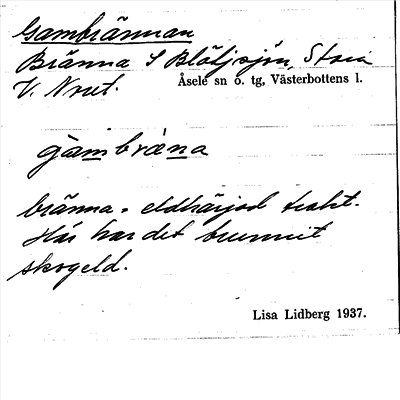 Gambrännan
Bränna S Blötsjön, Stora
V. Nrut.
Åsele sn o. tg, Västerbottens l.
gàmbræna
bränna = eldhärjad trakt.
Här har det brunnit
skogeld.
Lisa Lidberg 1937.